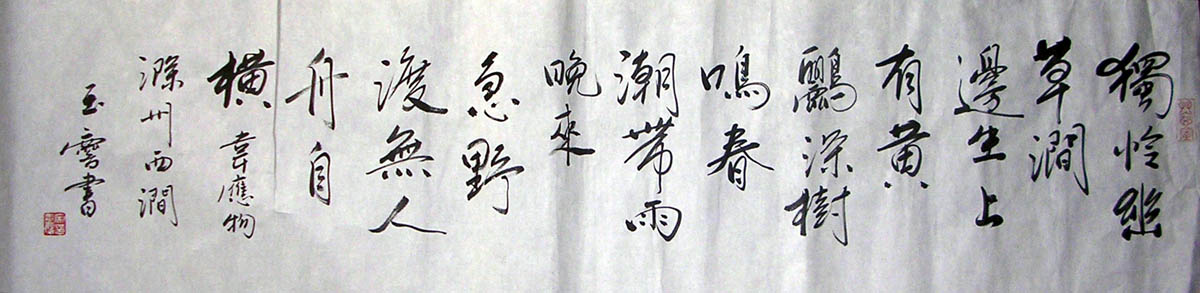 獨怜幽
草澗
邊生上
有黄
鸝深樹
鳴春
潮帶雨
晚來
急野
渡無人
舟自
横 韋應物
滁州西澗
玉 書